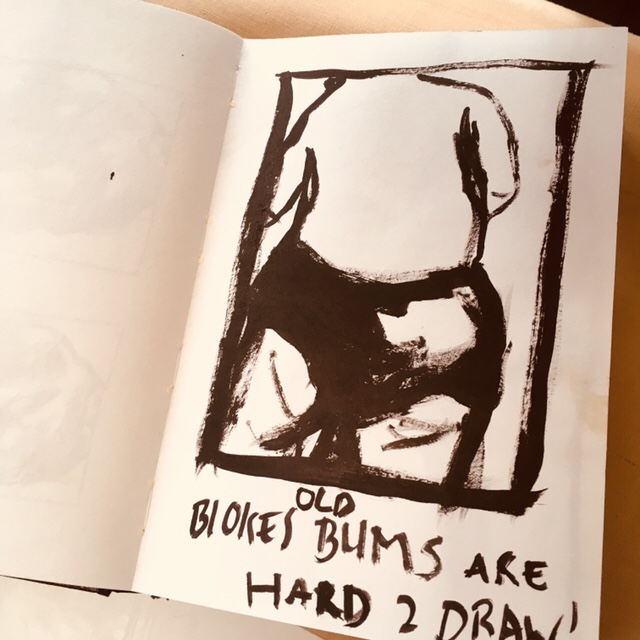 OLD
BLOKES BUMS ARE
HARD 2 DRAW!